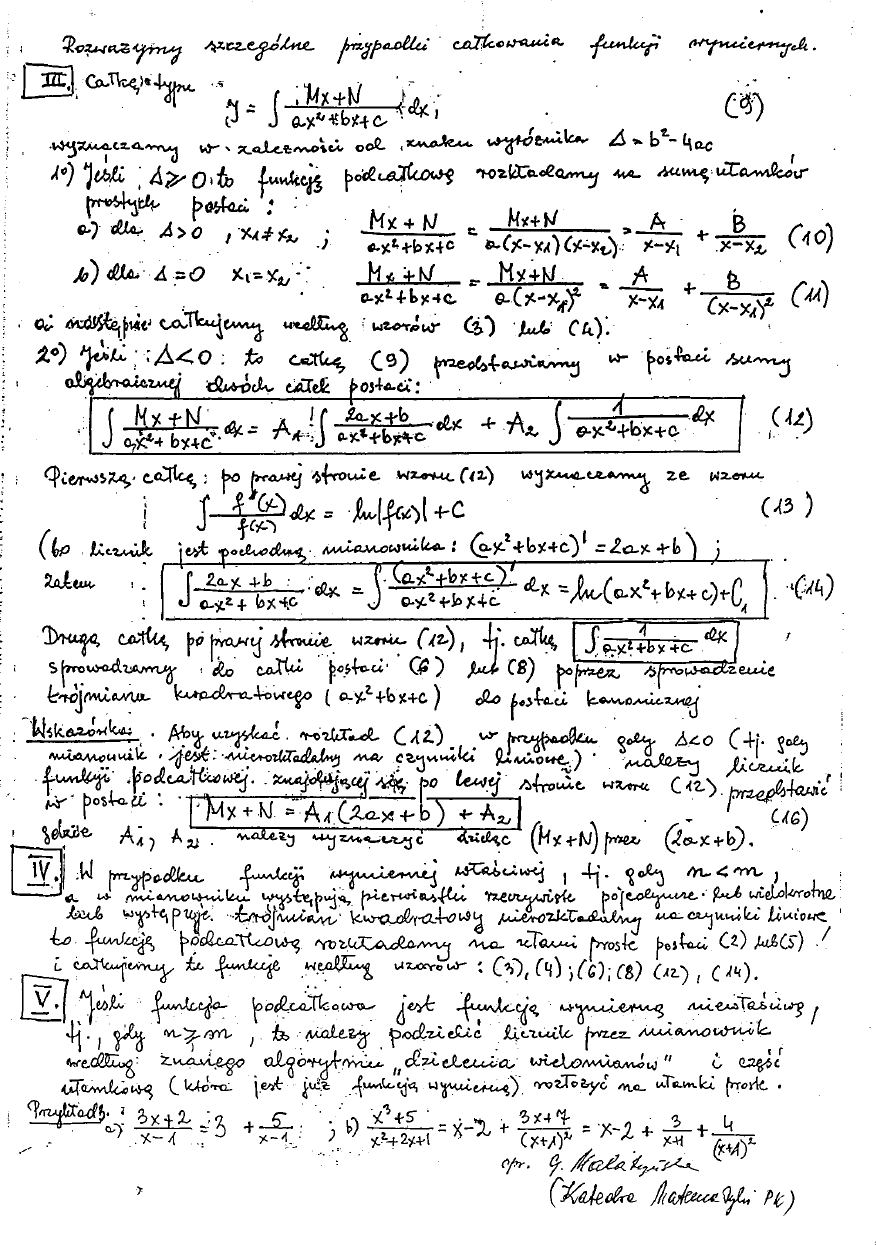 Rozważymy szczególne przypadki całkowania funkcji wymiernych.
III. Całkę typu
J = ∫ (Mx+N)/(ax²+bx+c) dx, (9)
wyznaczamy w zależności od znaku wyróżnika Δ = b²-4ac
1°) Jeśli Δ ⩾ 0 to funkcję podcałkową rozkładamy na sumę ułamków
prostych postaci:
a) dla Δ>0, x₁≠x₂ ; (Mx+N)/(ax²+bx+c) = (Mx+N)/(a(x-x₁)(x-x₂)) = A/(x-x₁) + B/(x-x₂) (10)
b) dla Δ=0 x₁=x₂ (Mx+N)/(ax²+bx+c) = (Mx+N)/(a(x-x₁)²) = A/(x-x₁) + B/(x-x₁)² (11)
a następnie całkujemy według wzorów (3) lub (4).
2°) Jeśli Δ<0 to całkę (9) przedstawiamy w postaci sumy
algebraicznej dwóch całek postaci:
∫ (Mx+N)/(ax²+bx+c) dx = A₁ ∫ (2ax+b)/(ax²+bx+c) dx + A₂ ∫ 1/(ax²+bx+c) dx (12)
Pierwszą całkę po prawej stronie wzoru (12) wyznaczamy ze wzoru
∫ f'(x)/f(x) dx = ln|f(x)| + C (13)
(bo licznik jest pochodną mianownika: (ax²+bx+c)' = 2ax+b) ;
zatem ∫ (2ax+b)/(ax²+bx+c) dx = ∫ (ax²+bx+c)'/(ax²+bx+c) dx = ln(ax²+bx+c)+C₁ (14)
Drugą całkę po prawej stronie wzoru (12), tj. całkę ∫ 1/(ax²+bx+c) dx
sprowadzamy do całki postaci (6) lub (8) poprzez sprowadzenie
trójmianu kwadratowego (ax²+bx+c) do postaci kanonicznej
Wskazówka: Aby uzyskać rozkład (12) w przypadku gdy Δ<0 (tj. gdy
mianownik jest nierozkładalny na czynniki liniowe) należy licznik
funkcji podcałkowej znajdującej się po lewej stronie wzoru (12) przedstawić
w postaci: Mx+N = A₁(2ax+b) + A₂ (16)
gdzie A₁, A₂ należy wyznaczyć dzieląc (Mx+N) przez (2ax+b).
IV. W przypadku funkcji wymiernej właściwej, tj. gdy n<m,
a w mianowniku występują pierwiastki rzeczywiste pojedyncze lub wielokrotne
lub występuje trójmian kwadratowy nierozkładalny na czynniki liniowe
to funkcję podcałkową rozkładamy na ułamki proste postaci (2) lub (5) !
i całkujemy te funkcje według wzorów: (3), (4); (6); (8) (12), (14).
V. Jeśli funkcja podcałkowa jest funkcją wymierną niewłaściwą,
tj., gdy n⩾m, to należy podzielić licznik przez mianownik
według znanego algorytmu „dzielenia wielomianów" i część
ułamkową (która jest już funkcją wymierną) rozłożyć na ułamki proste.
Przykład: a) (3x+2)/(x-1) = 3 + 5/(x-1) ; b) (x³+5)/(x²+2x+1) = x-2 + (3x+7)/(x+1)² = x-2 + 3/(x+1) + 4/(x+1)²
opr. G.
(Katedra Matematyki PK)